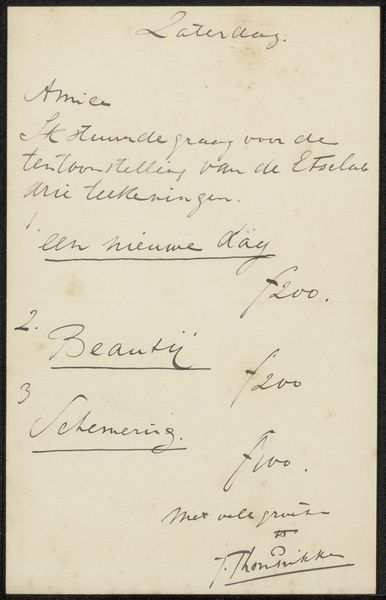 Zaterdag.
Amice
Ik stuurde graag voor de
tentoonstelling van de Etsclub
drie teekeningen.
1
een nieuwe dag
f200.
2.
Beautij
f200
3
Schemering.
f100.
Met vele groeten
tt
J. Thorn Prikker